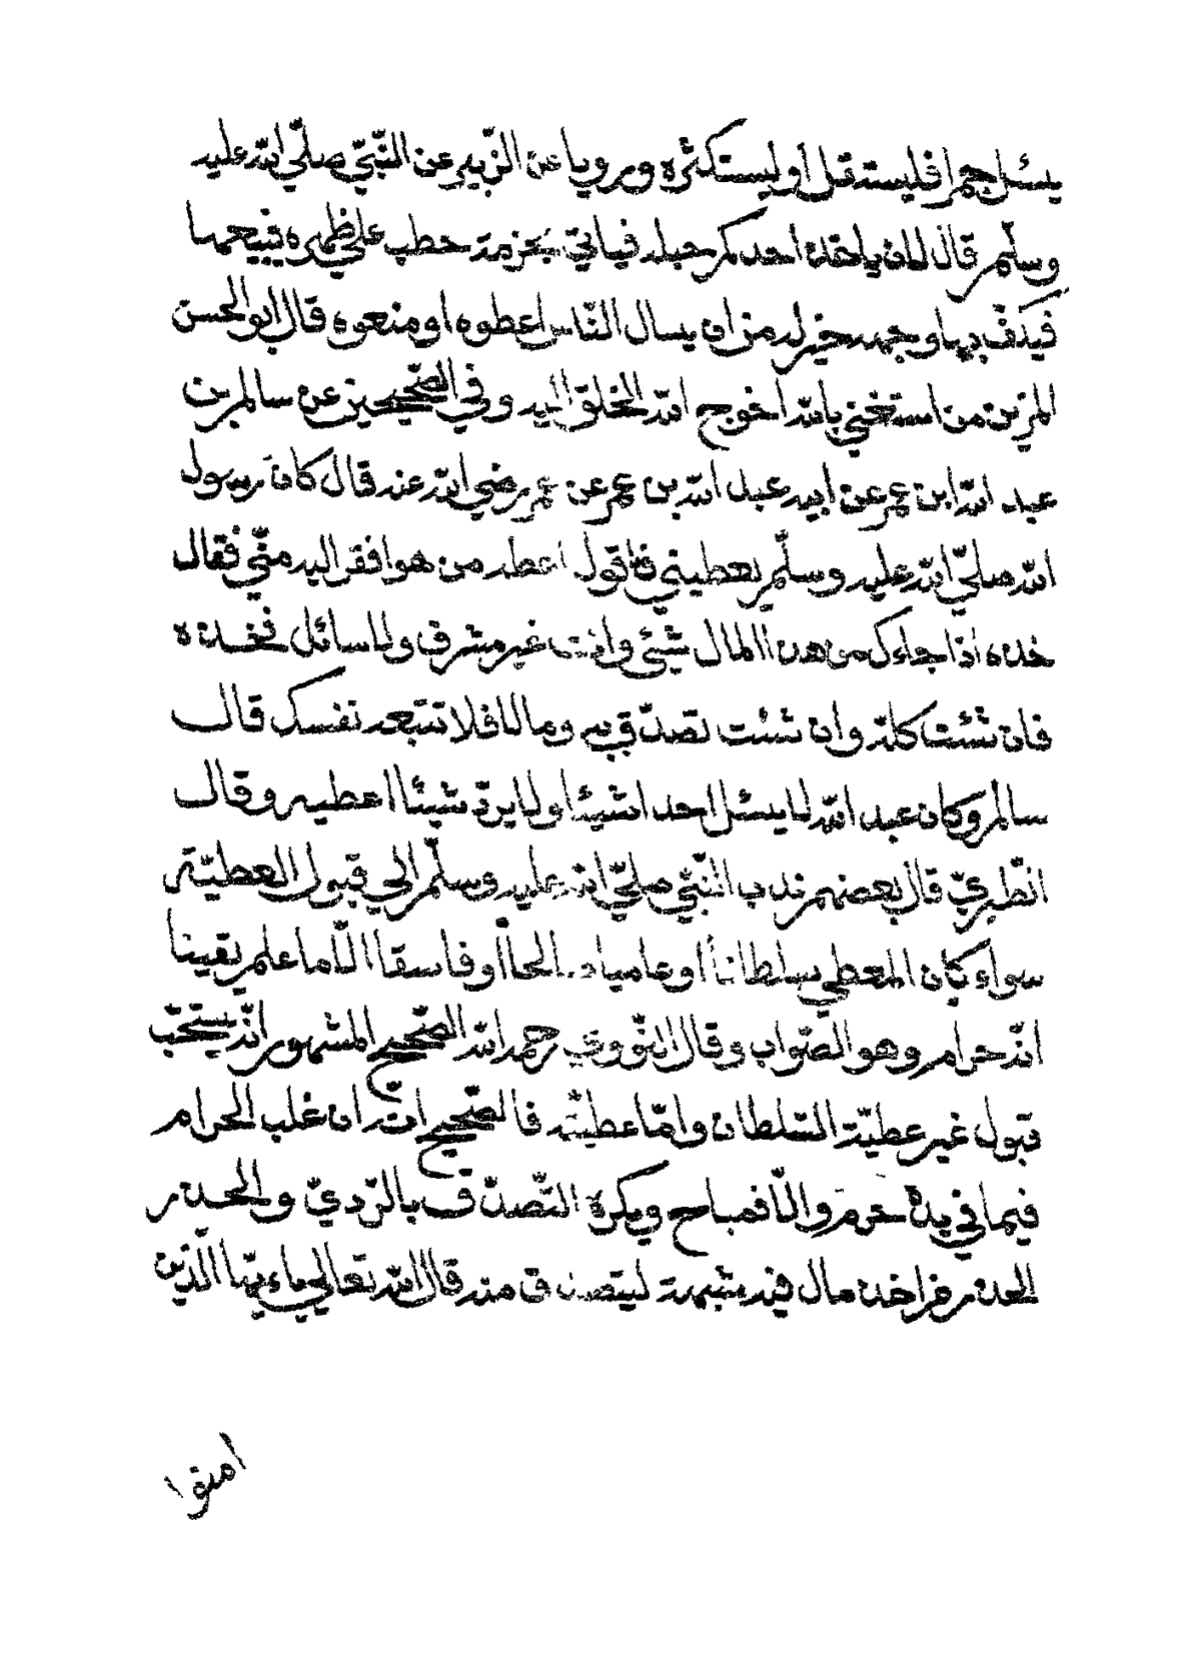 يسئل جمرا فليستقل أو ليستكثره ورويا عن الزبير عن النّبيّ صلّي الله عليه
وسلّم قال لان ياخذ احدكم حبله فياتي بحزمة حطب علي ظهره فيبيعها
فيكفّ بها وجهه خير له من ان يسال النّاس اعطوه او منعوه قال ابو الحسن
المزين من استغني بالله احوج الله الخلق اليه وفي الصّحيحين عن سالم بن
عبد الله ابن عمر عن ابيه عبد الله بن عمر عن عمر رضي الله عنه قال كان رسول
الله صلّي الله عليه وسلّم يعطيني فاقول اعطه من هو افقر اليه منّي فقال
خذه اذا جاءك من هذا المال شيئ وانت غير مشرف ولا سائل فخذه
فان شئت كله وان شئت تصدّق به وما لا فلا تتبعه نفسك قال
سالم وكان عبد الله لا يسئل احدا شيئا ولا يردّ شيئا اعطيه وقال
الطّبريّ قال بعضهم ندب النّبيّ صلّي الله عليه وسلّم الي قبول العطيّة
سواء كان المعطي سلطانا أو عاميا صالحا أو فاسقا الّا ما علم يقينا
انّه حرام وهو الصّواب وقال النّووي رحمه الله الصّحيح المشهور انّه يستحبّ
قبول غير عطيّة السّلطان وامّا عطيّته فالصّحيح انّه ان غلب الحرام
فيما في يده حرم والّا فمباح ويكره التّصدّق بالرّديّ وليحذر
الحذر من اخذ مال فيه شبهة ليتصدق منه قال الله تعالي ياءيّها الّذين
امنوا